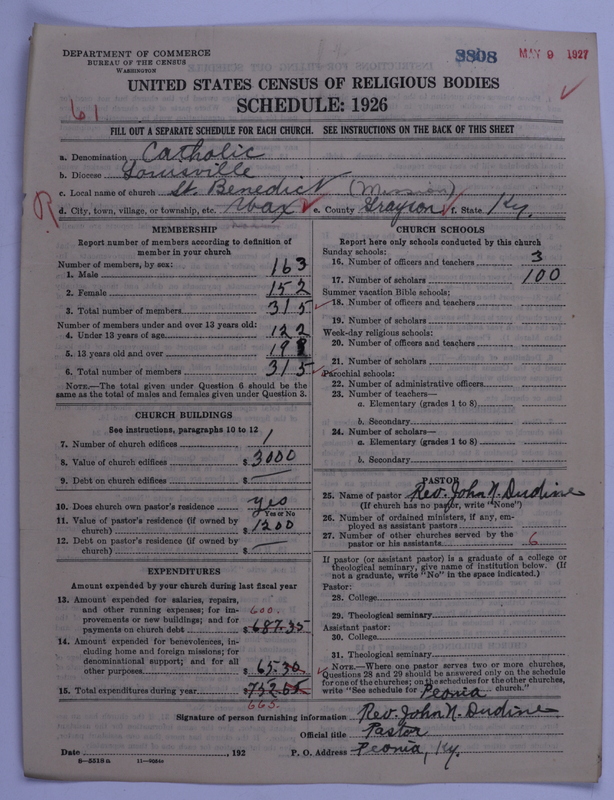 DEPARTMENT OF COMMERCE
BUREAU OF THE CENSUS
WASHINGTON
3808
MAY 9 1927
UNITED STATES CENSUS OF RELIGIOUS BODIES
SCHEDULE: 1926
61
FILL OUT A SEPARATE SCHEDULE FOR EACH CHURCH. SEE INSTRUCTIONS ON THE BACK OF THIS SHEET
a. Denomination Catholic
b. Diocese Louisville
c. Local name of church St. Benedict (Mission)
R d. City, town, village, or township, etc. Wax e. County Grayson f. State Ky.
MEMBERSHIP
Report number of members according to definition of
member in your church
Number of members, by sex:
1. Male 163
2. Female 152
3. Total number of members 315
Number of members under and over 13 years old:
4. Under 13 years of age 122
5. 13 years old and over 193
6. Total number of members 315
NOTE.—The total given under Question 6 should be
same as the total of males and females given under Question 3.
CHURCH BUILDINGS
See instructions, paragraphs 10 to 12
7. Number of church edifices 1
8. Value of church edifices $ 3000
9. Debt on church edifices $ —
10. Does church own pastor's residence? yes
Yes or No
11. Value of pastor's residence (if owned by
church) $ 1200
12. Debt on pastor's residence (if owned by
church) $ —
EXPENDITURES
Amount expended by your church during last fiscal year
13. Amount expended for salaries, repairs,
and other running expenses; for im- 600
provements or new buildings; and for
payments on church debt $ 687.35
14. Amount expended for benevolences, in-
cluding home and foreign missions; for
denominational support; and for all
other purposes $ 65.30
15. Total expenditures during year $ 752.65
665.
CHURCH SCHOOLS
Report here only schools conducted by this church
Sunday schools:
16. Number of officers and teachers 3
17. Number of scholars 100
Summer vacation Bible schools:
18. Number of officers and teachers
19. Number of scholars
Week-day religious schools:
20. Number of officers and teachers
21. Number of scholars
Parochial schools:
22. Number of administrative officers
23. Number of teachers—
a. Elementary (grades 1 to 8)
b. Secondary
24. Number of scholars—
a. Elementary (grades 1 to 8)
b. Secondary
PASTOR
25. Name of pastor Rev. John N. Dudine
(If church has no pastor, write "None")
26. Number of ordained ministers, if any, em-
ployed as assistant pastors
27. Number of other churches served by the
pastor or his assistants 6
If pastor (or assistant pastor) is a graduate of a college or
theological seminary, give name of institution below. (If
not a graduate, write "No" in the space indicated.)
Pastor:
28. College
29. Theological seminary
Assistant pastor:
30. College
31. Theological seminary
NOTE.—Where one pastor serves two or more churches,
Questions 28 and 29 should be answered only on the schedule
for one of the churches; on the schedules for the other churches,
write "See schedule for Peonia church."
Signature of person furnishing information Rev. John N. Dudine
Official title Pastor
Date , 192 P. O. Address Peonia, Ky.
8—5518a